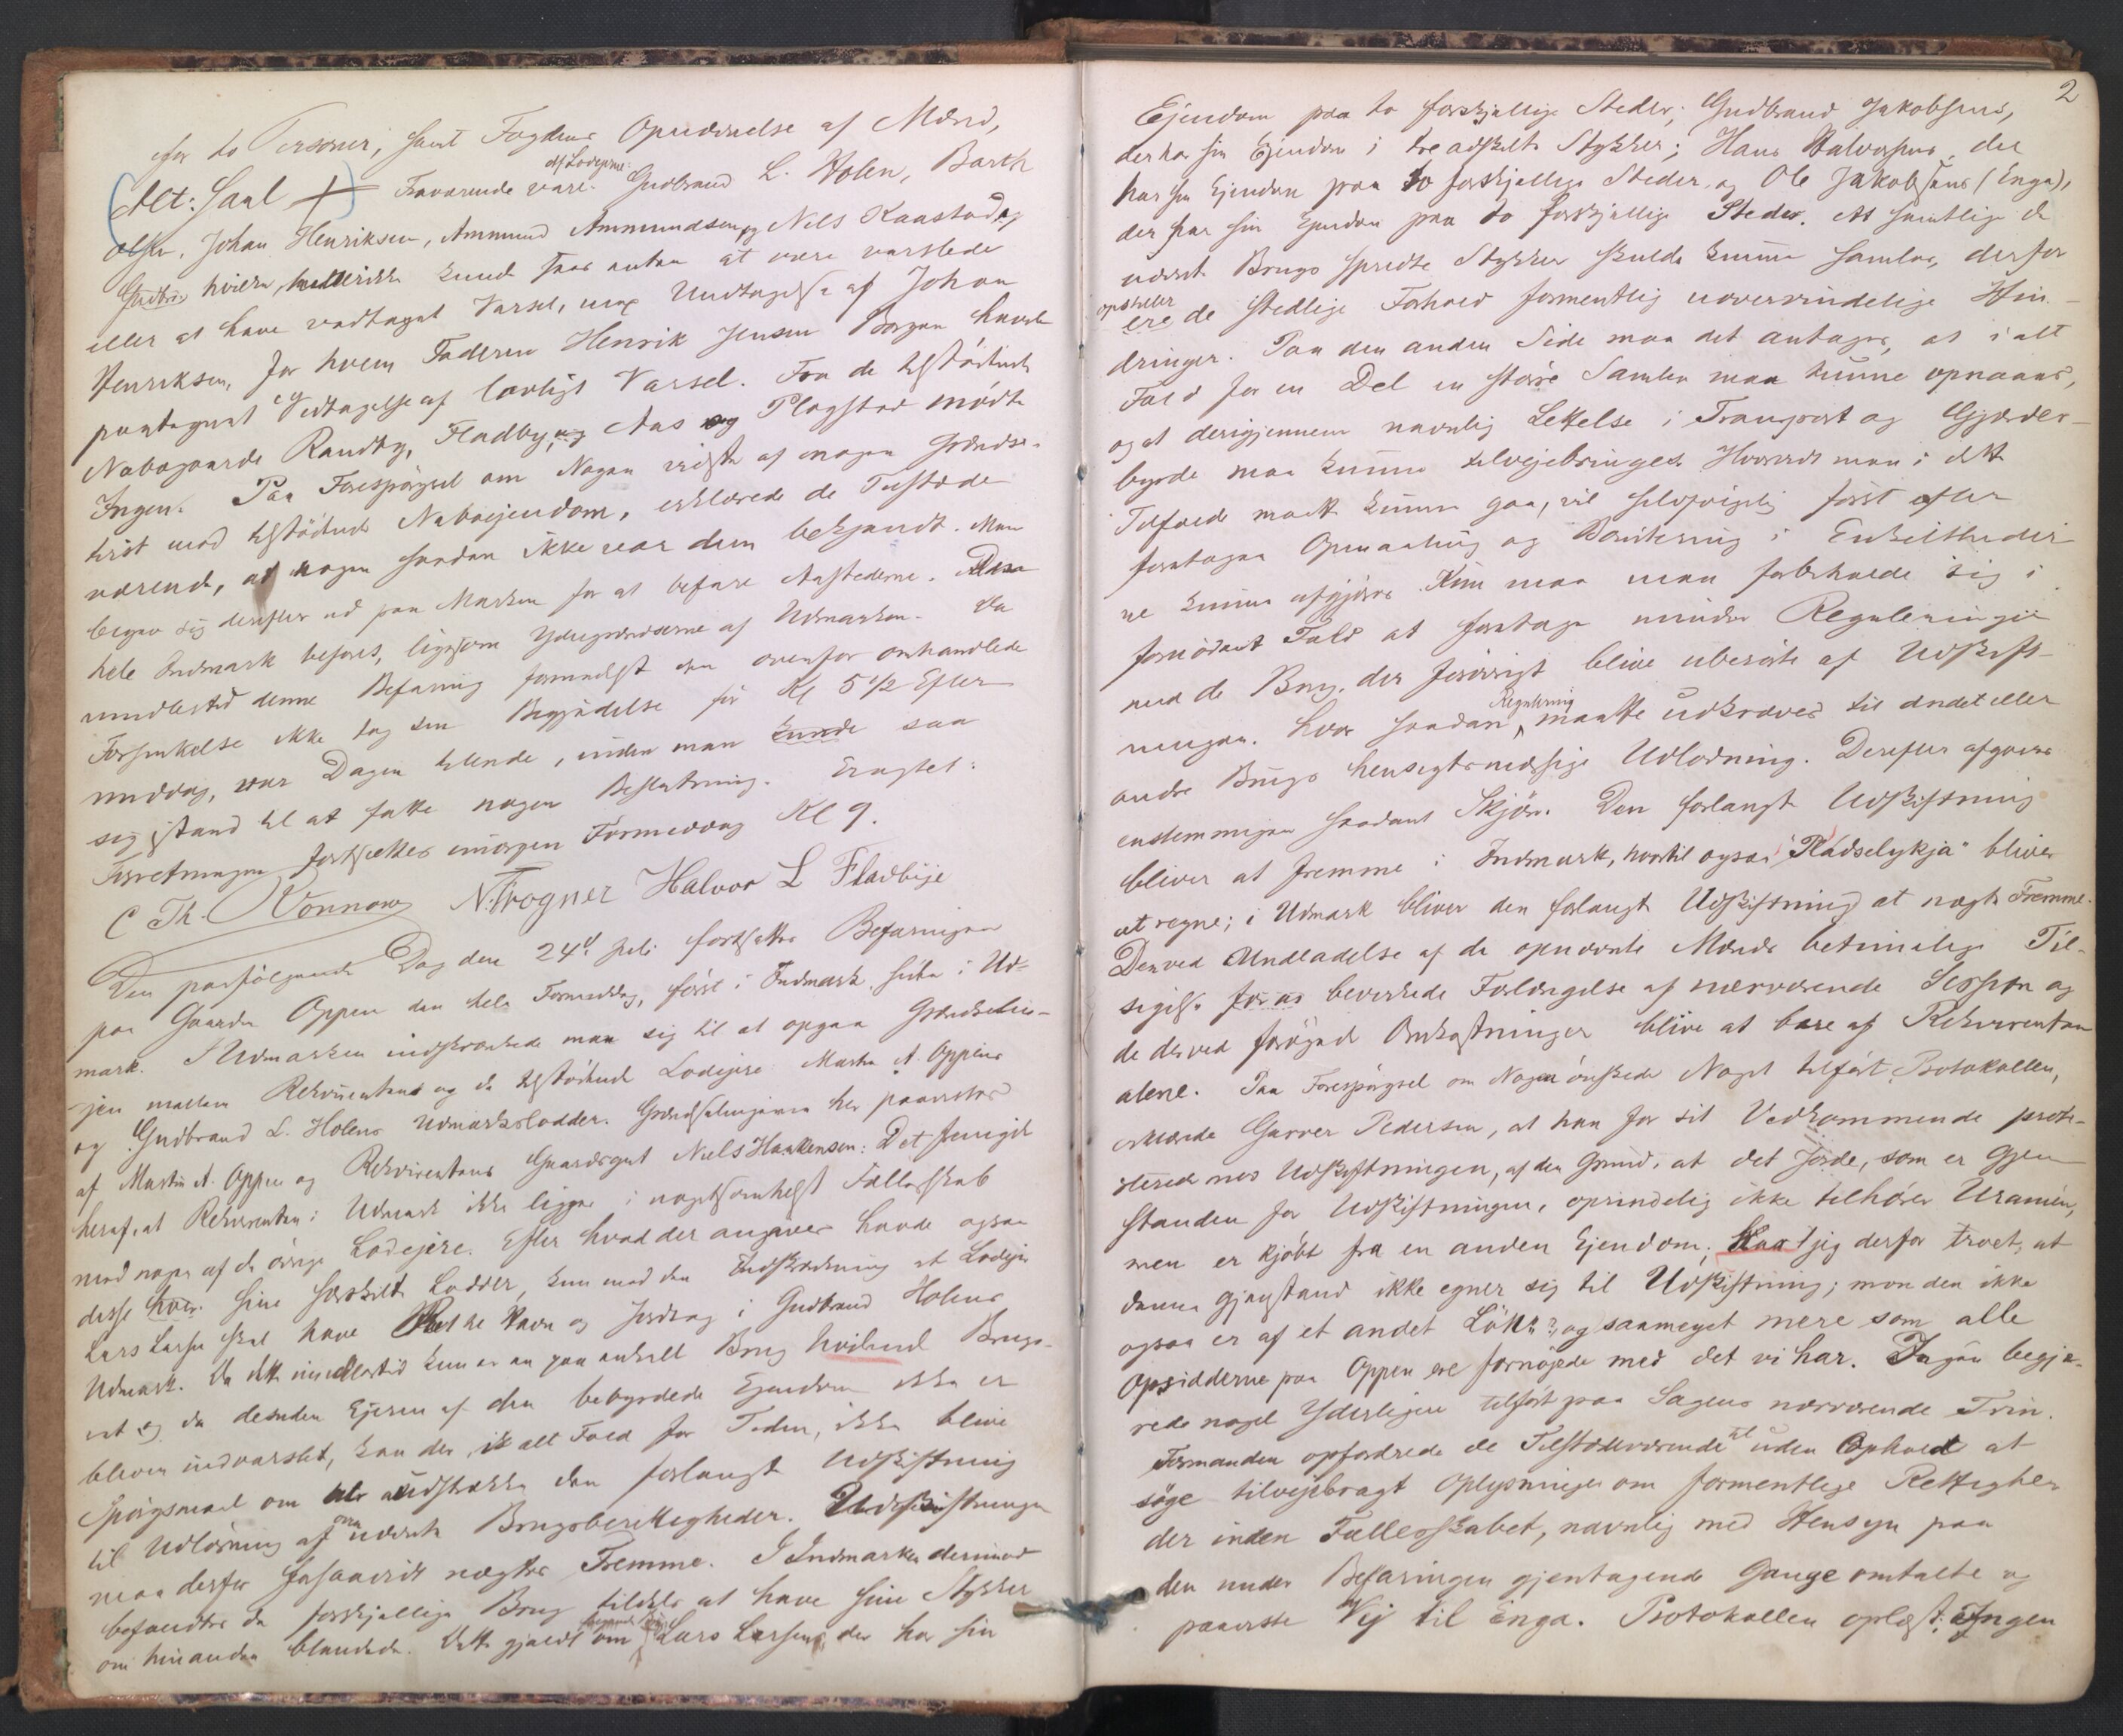 for to Personer, samt Fogdens Opnævnelse af Mænd,
Alt: Saal Fraværende vare af Lodeierne: Gudbrand L. Holen, Barth
Olsen, Johan Henriksen, Ammund Ammundsen og Nils Kaastad og
hvilke kunde sees enten at være varslede
eller at have vedtaget Varsel, med Undtagelse af Johan
Henriksen, for hvem Faderen Henrik Jensen Borgen havde
paategnet Vedtagelse af lovligt Varsel. Fra de tilstødende
Nabogaarde Randby, Fladby, Aas og Plogstad mødte
Ingen. Paa Forespørgsel om Nogen vidste af nogen Grændse-
tvist mod tilstødende Naboejendom, erklærede de Tilstede-
værende, at nogen saadan ikke var dem bekjendt. Man
begav sig derefter ud paa Marken for at befare Aastederne.
hele Indmark befares, ligesom Ydregrændserne af Udmarken. Da
imidlertid denne Befaring formedelst den ovenfor omhandlede
Forsinkelse ikke tog sin Begyndelse før Kl 5 1/2 Efter-
middag, var Dagen tilende, inden man kunde saa
sig istand til at fatte nogen Beslutning. Eragtet:
Forretningen fortsættes imorgen Formiddag Kl 9.
C Th. Vonnow N. Trogner Halvor L Fladbye
Den paafølgende Dag den 24de Juli fortsattes Befaringen
paa Gaarden Oppen den hele Formiddag, først i Indmark, siden i Ud-
mark. I Udmarken indskrænkede man sig til at opgaa Grændselin-
jen mellem Rekvirenten og de tilstødende Lodejere Martin A. Oppens
og Gudbrand L. Holens Udmarkslodder. Grændselinjerne her paavistes
af Martin A. Oppen og Rekvirentens Gaardsgut Niels Haakensen: Det fremgik
heraf, at Rekvirenten i Udmark ikke ligger i nogetsomhelst Fællesskab
med nogen af de øvrige Lodejere. Efter hvad der angives havde ogsaa
disse hver sine særskilte Lodder, kun med den Indskrænkning at Lodejer
Lars Larsen skal have Rett til Havn og Jordtag i Gudbrand Holens
Udmark. Da dette imidlertid kun er en paa enkelt Brug hvilende Brugs-
ret og da desuden Ejeren af den bebyrdede Ejendom ikke er
bleven indvarslet, kan der, i alt Fald for Tiden, ikke blive
Spørgsmaal om at udstrække den forlangte Udskiftning
til Udløsning af omnævnte Brugsberettigheder. Udskiftningen
maa derfor forsaavidt nægtes Fremme. I Indmarken derimod
befandtes de forskjellige Brug tildels at have sine Stykker
om hinanden blandede. Dette gjaldt om Lars Larsen, der har sin
2
Ejendom paa to forskjellige Steder; Gudbrand Jakobsens,
der har sin Ejendom i tre adskilte Stykker; Hans Halvorsens, der
har sin Ejendom paa to forskjellige Steder, og Ole Jakobsens (Enga),
der har sin Ejendom paa to forskjellige Steder. At samtlige de
nævnte Brugs spredte Stykker skulde kunne samles, derfor
opstiller de stedlige Forhold formentlig uovervindelige Hin-
dringer. Paa den anden Side maa det antages, at i alt
Fald for en Del en større Samlen maa kunne opnaaes,
og at derigjennem navnlig Lettelse i Transport og Gjærdes-
byrde maa kunne tilvejebringes. Hvorvidt man i dette
Tilfælde maatte kunne gaa, vil selvfølgelig først efter
foretagen Opmaaling og Bonitering i Enkeltheder-
ne kunne afgjøres. Kun maa man forbeholde sig i
fornødent Fald at foretage mindre Reguleringer
med de Brug, der forøvrigt blive uberørte af Udskift-
ningen, hvor saadan Regulering maatte udkræves til andet eller
andre Brugs hensigtsmæssige Udlodning. Derefter afgaves
enstemmigen saadant Skjøn. Den forlangte Udskiftning
bliver at fremme i Indmark, hvortil ogsaa "Pladselykja" bliver
at regne; i Udmark bliver den forlangte Udskiftning at nægte Fremme.
Den ved Undladelse af de opnævnte Mænds betimelige Til-
sigelse foraarsbevirkede Forlængelse af nærværende Session og
de derved forøgede Omkostninger blive at bære af Rekvirenten
alene. Paa Forespørgsel om Nogen ønskede Noget tilført Protokollen,
erklærede Garver Pedersen, at han for sit Vedkommende prote-
sterede mod Udskiftningen, af den Grund, at det Jorde, som er Gjen-
standen for Udskiftningen, oprindelig ikke tilhører Uranien,
men er kjøbt fra en anden Ejendom; Har jeg derfor troet, at
denne Gjenstand ikke egner sig til Udskiftning; mon den ikke
ogsaa er af et andet Løkr?, og saameget mere som alle
Opsidderne paa Oppen ere fornøjede med det vi har. Ingen begjæ-
rede noget Yderligere tilført paa Sagens nærværende Trin.
Formanden opfordrede de Tilstedeværende til uden Ophold at
søge tilvejebragt Oplysninger om formentlige Rettighe-
der inden Fællesskabet, navnlig med Hensyn paa
den under Befaringen gjentagende Gange omtalte og
paaviste Vej til Enga. Protokollen oplæst: Ingen